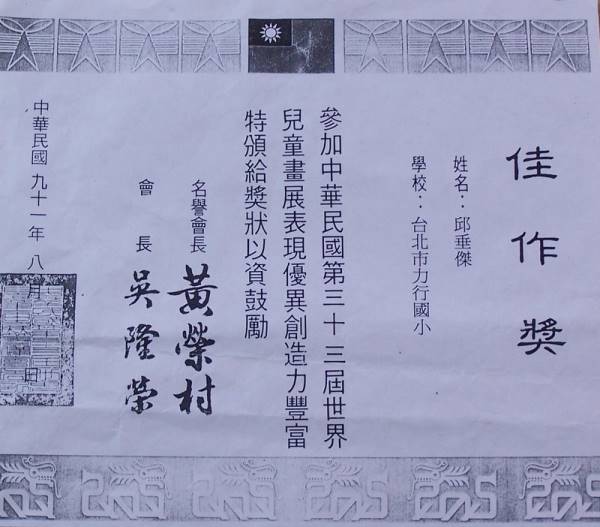 佳作獎
姓名：邱垂傑
學校：台北市力行國小
參加中華民國第三十三屆世界
兒童畫展表現優異創造力豐富
特頒給獎狀以資鼓勵
名譽會長 黃榮村
會長 吳隆榮
中華民國 九十一年 八月 日